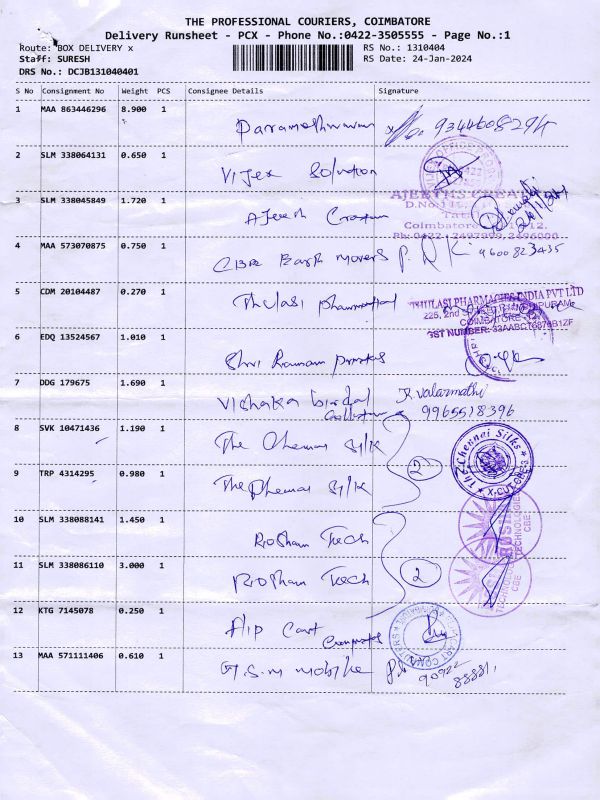 THE PROFESSIONAL COURIERS, COIMBATORE
Delivery Runsheet - PCX - Phone No.:0422-3505555 - Page No.:1
Route: BOX DELIVERY x
RS No.: 1310404
Staff: SURESH
RS Date: 24-Jan-2024
DRS No.: DCJB131040401
S No Consignment No Weight PCS Consignee Details Signature
1 MAA 863446296 8.900 1
Parameshwaran 9344608294
2 SLM 338064131 0.650 1
Vijex Solution
3 SLM 338045849 1.720 1
AJEETHS CREAT
D.No
Tata
Ajeeth Creation
24/1/24
Coimbatore 12.
Ph: 0422 - 2497999, 2496000
4 MAA 573070875 0.750 1
CBR Earth movers P. 9600823435
5 CDM 20104487 0.270 1
Thulasi pharmaceutical
THULASI PHARMACIES INDIA PVT LTD
226, 2nd
COIMBATORE
GST NUMBER: 33AABC
6 EDQ 13524567 1.010 1
Shri Raman printers
7 DDG 179675 1.690 1
Vishaka bridal R. Valarmathi
Collection 9965518396
8 SVK 10471436 1.190 1
The Chennai Silk
The Chennai Silks
X-CUT ROAD
9 TRP 4314295 0.980 1
2
The Chennai Silk
10 SLM 338088141 1.450 1
Roshan Tech
TECHNOLOGIES
CBE
11 SLM 338086110 3.000 1
2
Roshan Tech
TECHNOLOGIES
CBE
12 KTG 7145078 0.250 1
Flip Cart Computers
ART COMPUTERS
13 MAA 571111406 0.610 1
G.S.M mobile 90922
88881